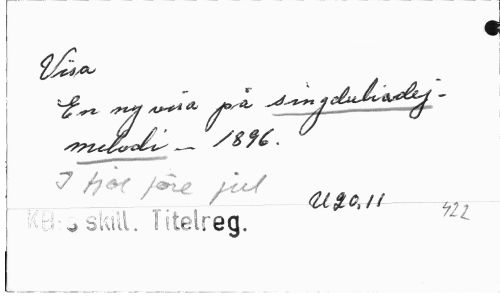 Visa
En ny visa på singdudeliadej-
melodi – 1896.
I fjol före jul
U20,11
422
KB:s skill. Titelreg.